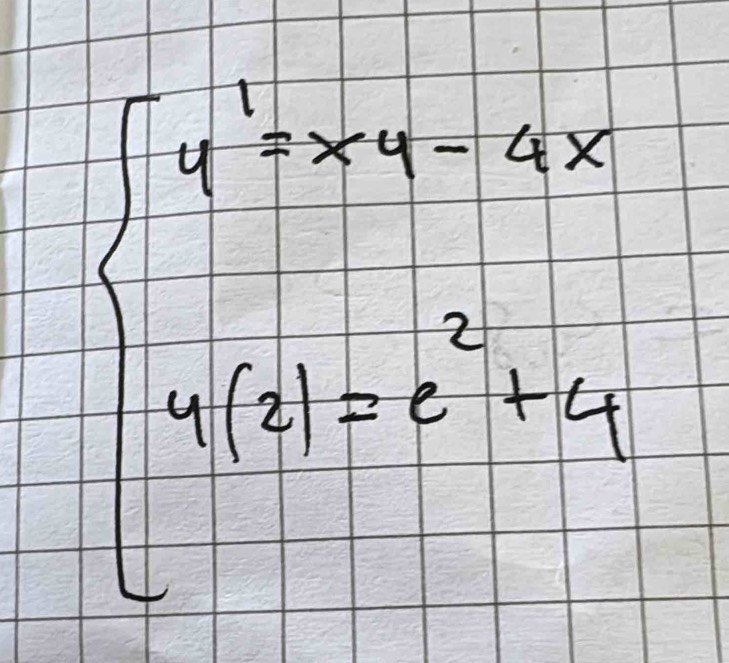 y' = xy - 4x
y(2) = e² + 4